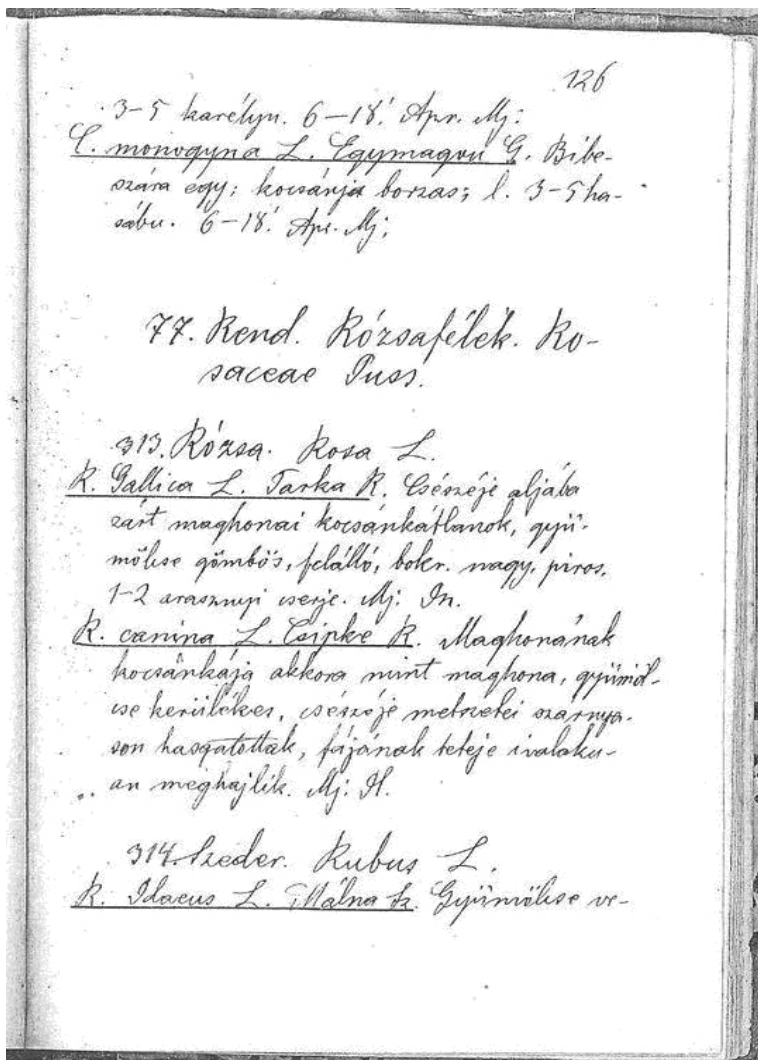 126
3-5 karélyu. 6-18'. Apr. Mj:
C. monogyna L. Egymagvú G. Bibe-
szára egy; kocsánja borzas; l. 3-5 ha-
sábu. 6-18'. Apr. Mj;
77. Rend. Rózsafélék. Ro-
saceae Juss.
313. Rózsa. Rosa L.
R. Gallica L. Tarka R. Csészéje aljába
zárt maghonai kocsánkátlanok, gyü-
mölcse gömbös, felálló, bokr. nagy, piros,
1-2 arasznyi cserje. Mj: In.
R. canina L. Csipke R. Maghonának
kocsánkája akkora mint maghona, gyümöl-
cse kerülékes, csészéje metszetei szárnya-
son hasgatottak, fájának teteje ivalaku-
an meghajlik. Mj:
314. Szeder. Rubus L.
R. Idaeus L. Málna Sz. Gyümölcse ve-